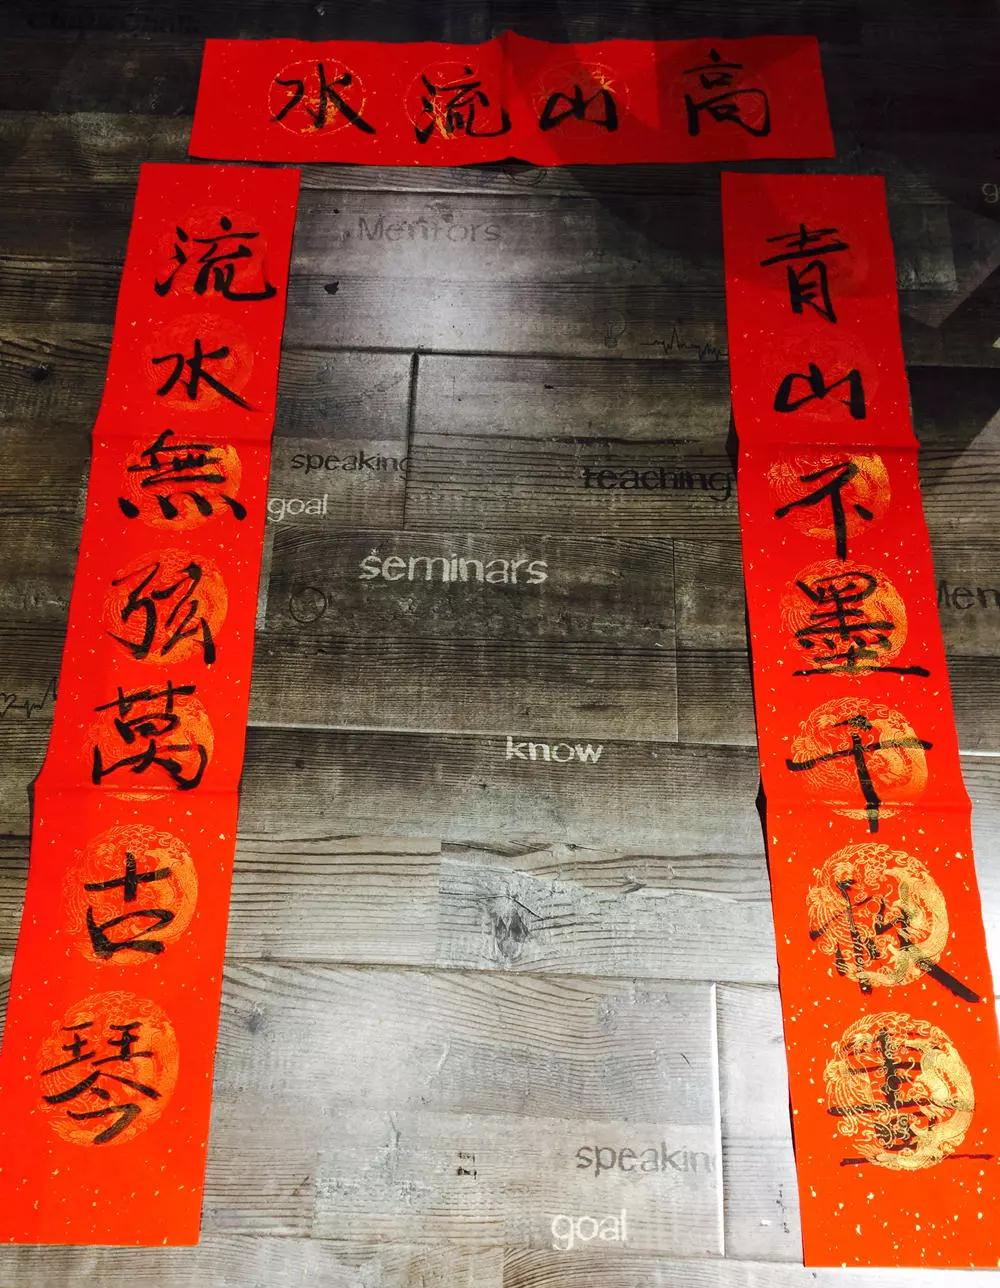 高山流水
青山不墨千秋畫
流水無弦萬古琴
Mentors
speaking
teaching
goal
seminars
know
speaking
goal